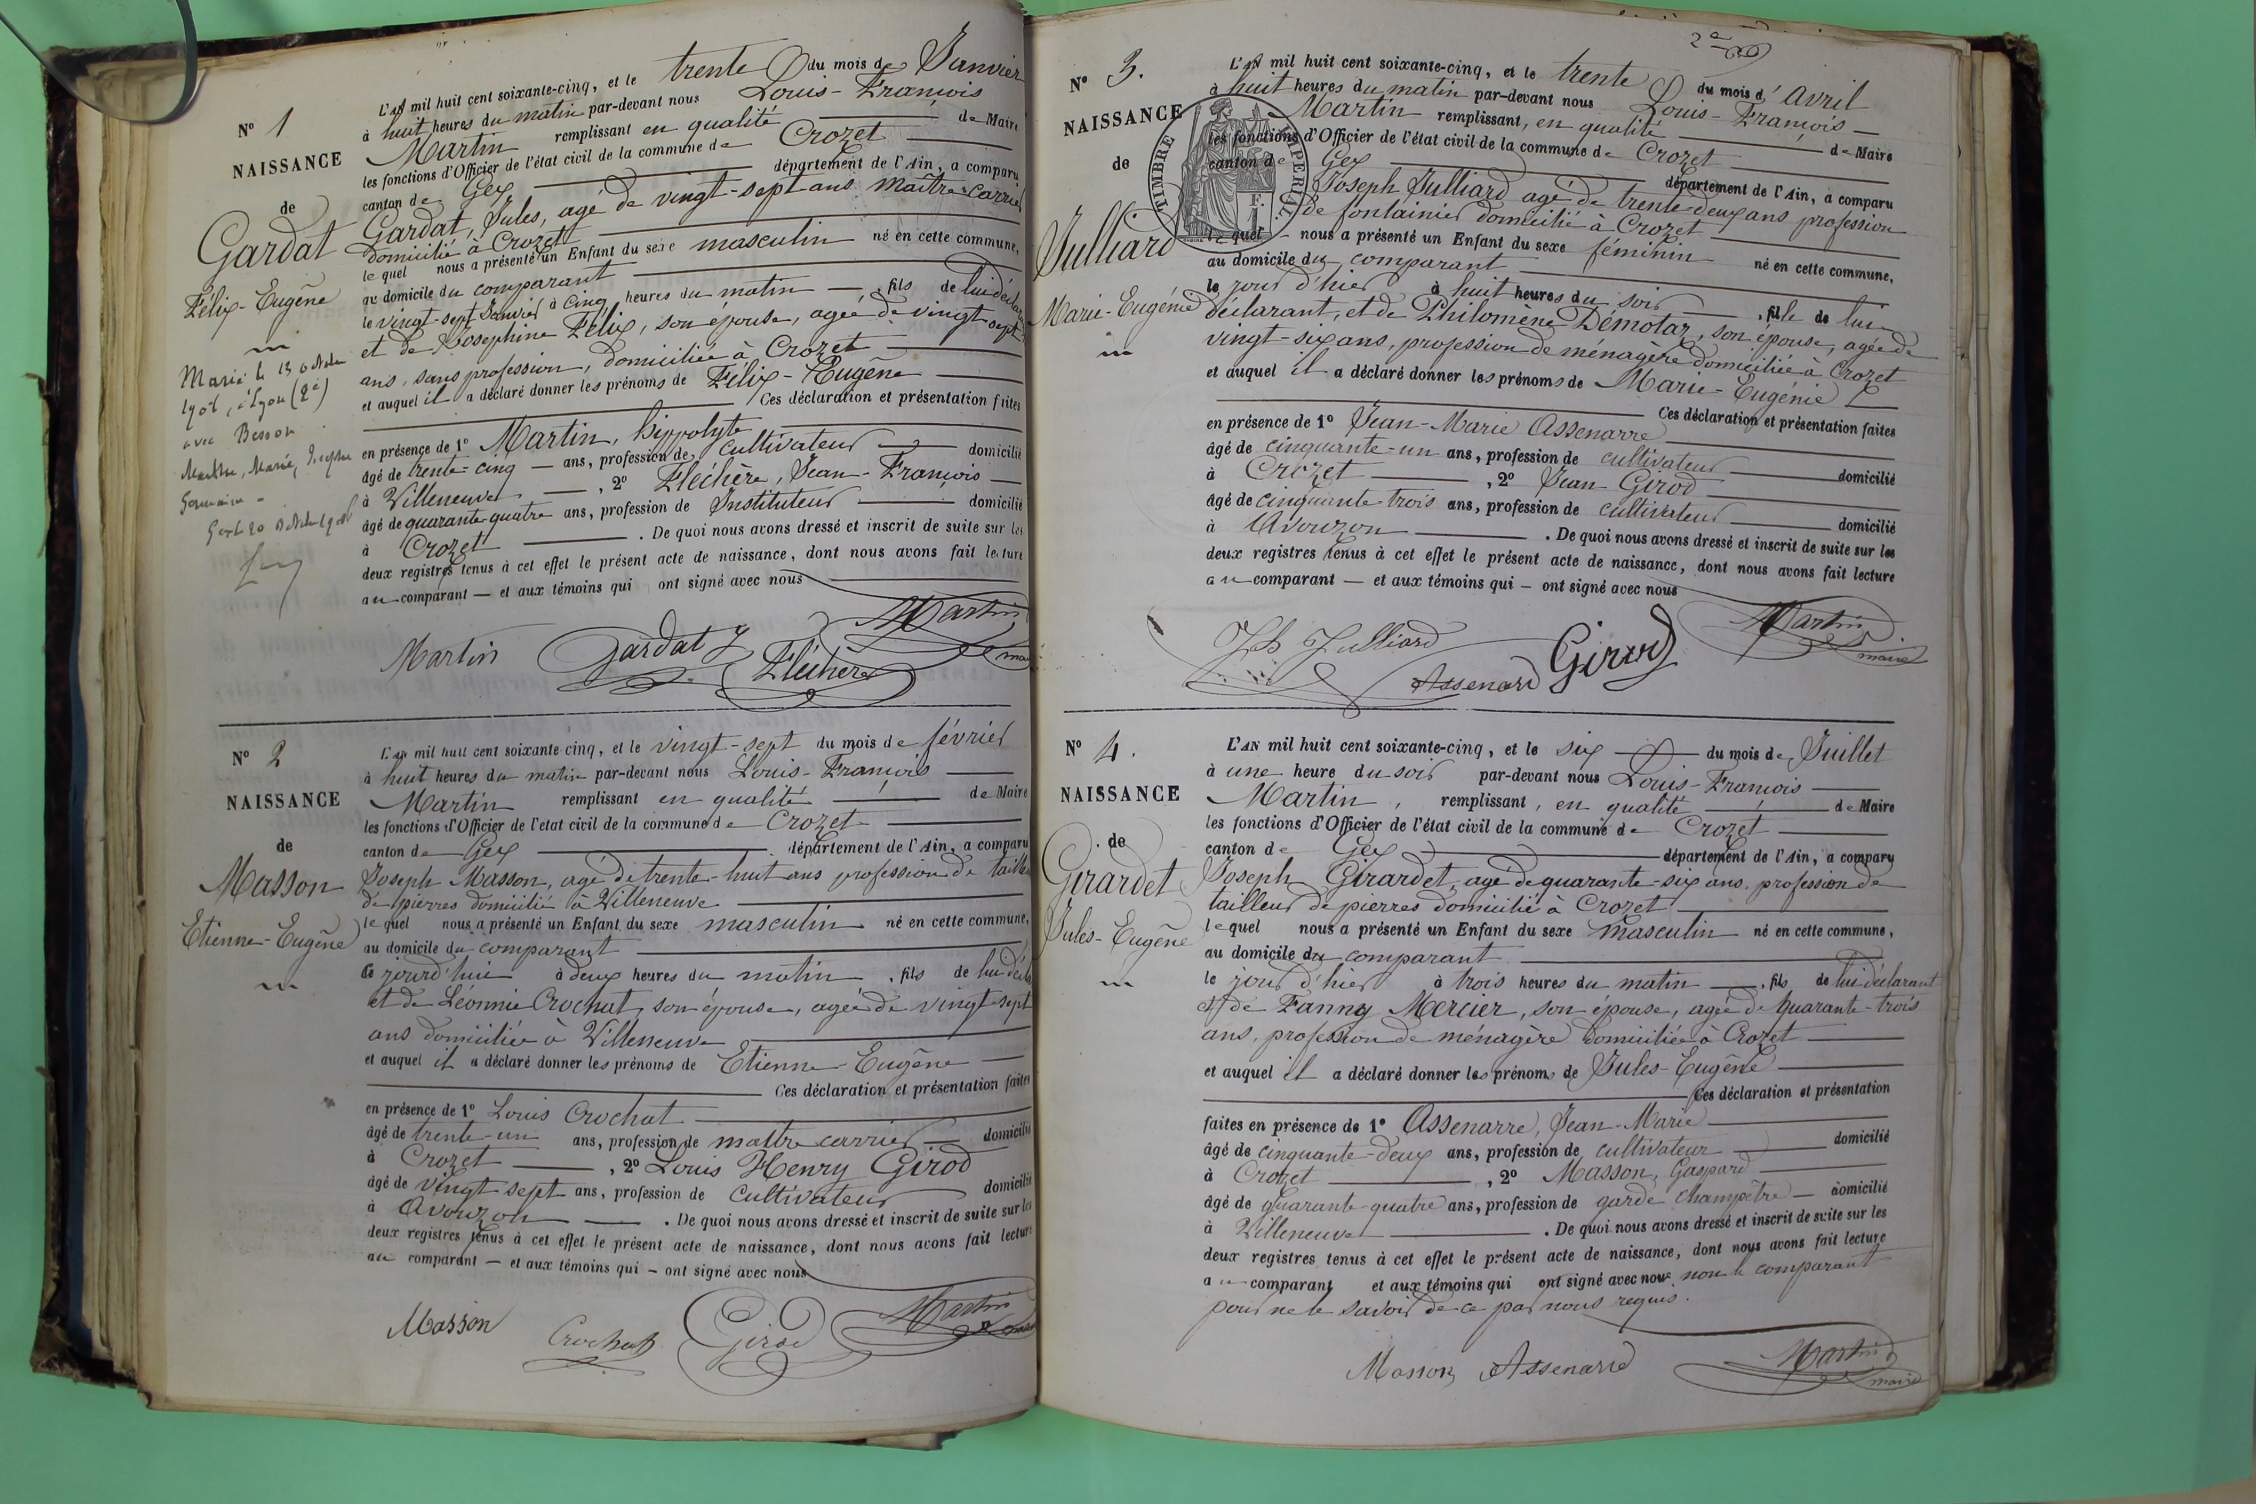 N° 1
NAISSANCE
de
Gardat
Félix-Eugène
Marié le 15 octobre
à Lyon (2e)
avec Besson
Marie, Josephe
Germaine
L'AN mil huit cent soixante-cinq, et le trente du mois de Janvier
à huit heures du matin par-devant nous Louis-François
Martin remplissant en qualité de Maire
les fonctions d'Officier de l'état civil de la commune de Crozet
canton de Gex département de l'Ain, a comparu
Gardat, Jules, agé de vingt-sept ans maître-carrier
domicilié à Crozet
lequel nous a présenté un Enfant du sexe masculin né en cette commune,
au domicile du comparant
le vingt-sept Janvier à cinq heures du matin fils de lui déclarant
et de Josephine Félix, son épouse, agée de vingt-sept
ans, sans profession, domiciliée à Crozet
et auquel il a déclaré donner les prénoms de Félix-Eugène
Ces déclaration et présentation faites
en présence de 1° Martin, hippolyte
âgé de trente-cinq ans, profession de cultivateur domicilié
à Villeneuve, 2° Fléchère, Jean-François
âgé de quarante-quatre ans, profession de Instituteur domicilié
à Crozet. De quoi nous avons dressé et inscrit de suite sur les
deux registres tenus à cet effet le présent acte de naissance, dont nous avons fait lecture
au comparant — et aux témoins qui ont signé avec nous
Martin Gardat J Fléchère Martin
maire
N° 2
NAISSANCE
de
Masson
Etienne-Eugène
L'AN mil huit cent soixante-cinq, et le vingt-sept du mois de février
à huit heures du matin par-devant nous Louis-François
Martin remplissant en qualité de Maire
les fonctions d'Officier de l'état civil de la commune de Crozet
canton de Gex département de l'Ain, a comparu
Joseph Masson, agé de trente-huit ans profession de tailleur
de pierres domicilié à Villeneuve
lequel nous a présenté un Enfant du sexe masculin né en cette commune,
au domicile du comparant
ce jourd'hui à deux heures du matin, fils de lui
et de Léonnie Crochat, son épouse, agée de vingt-sept
ans domiciliée à Villeneuve
et auquel il a déclaré donner les prénoms de Etienne-Eugène
Ces déclaration et présentation faites
en présence de 1° Louis Crochat
âgé de trente-un ans, profession de maître carrier domicilié
à Crozet, 2° Louis Henry Girod
âgé de vingt sept ans, profession de cultivateur domicilié
à Avouzon. De quoi nous avons dressé et inscrit de suite sur les
deux registres tenus à cet effet le présent acte de naissance, dont nous avons fait lecture
au comparant — et aux témoins qui — ont signé avec nous
Masson Crochat Girod Martin
maire
2e
N° 3.
NAISSANCE
de
Julliard
Marie-Eugénie
TIMBRE IMPÉRIAL
1 F.
L'AN mil huit cent soixante-cinq, et le trente du mois d'avril
à huit heures du matin par-devant nous Louis-François
Martin remplissant, en qualité de Maire
les fonctions d'Officier de l'état civil de la commune de Crozet
canton de Gex département de l'Ain, a comparu
Joseph Julliard agé de trente-deux ans profession
de fontainier domicilié à Crozet
lequel nous a présenté un Enfant du sexe féminin né en cette commune,
au domicile du comparant
le jour d'hier à huit heures du soir, fille de lui
déclarant, et de Philomène Démotaz, son épouse, agée de
vingt-six ans, profession de ménagère domiciliée à Crozet
et auquel il a déclaré donner les prénoms de Marie-Eugénie
Ces déclaration et présentation faites
en présence de 1° Jean-Marie Assenarre
âgé de cinquante-un ans, profession de cultivateur domicilié
à Crozet, 2° Jean Girod
âgé de cinquante-trois ans, profession de cultivateur domicilié
à Avouzon. De quoi nous avons dressé et inscrit de suite sur les
deux registres tenus à cet effet le présent acte de naissance, dont nous avons fait lecture
au comparant — et aux témoins qui — ont signé avec nous
Jh Julliard Assenard Girod Martin
maire
N° 4.
NAISSANCE
de
Girardet
Jules-Eugène
L'AN mil huit cent soixante-cinq, et le six du mois de Juillet
à une heure du soir par-devant nous Louis-François
Martin, remplissant, en qualité de Maire
les fonctions d'Officier de l'état civil de la commune de Crozet
canton de Gex département de l'Ain, a comparu
Joseph Girardet, agé de quarante-six ans, profession de
tailleur de pierres domicilié à Crozet
lequel nous a présenté un Enfant du sexe masculin né en cette commune,
au domicile du comparant
le jour d'hier à trois heures du matin, fils de lui déclarant
et de Fanny Mercier, son épouse, agée de quarante-trois
ans, profession de ménagère domiciliée à Crozet
et auquel il a déclaré donner les prénoms de Jules-Eugène
Ces déclaration et présentation
faites en présence de 1° Assenarre, Jean-Marie
âgé de cinquante-deux ans, profession de cultivateur domicilié
à Crozet, 2° Masson, Gaspard
âgé de quarante-quatre ans, profession de garde champêtre — domicilié
à Villeneuve. De quoi nous avons dressé et inscrit de suite sur les
deux registres tenus à cet effet le présent acte de naissance, dont nous avons fait lecture
au comparant et aux témoins qui ont signé avec nous non le comparant
pour ne le savoir de ce par nous requis.
Masson Assenarre Martin
maire